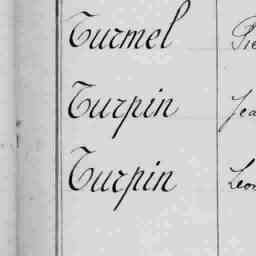 Turmel Pie
Turpin Jea
Turpin Leon